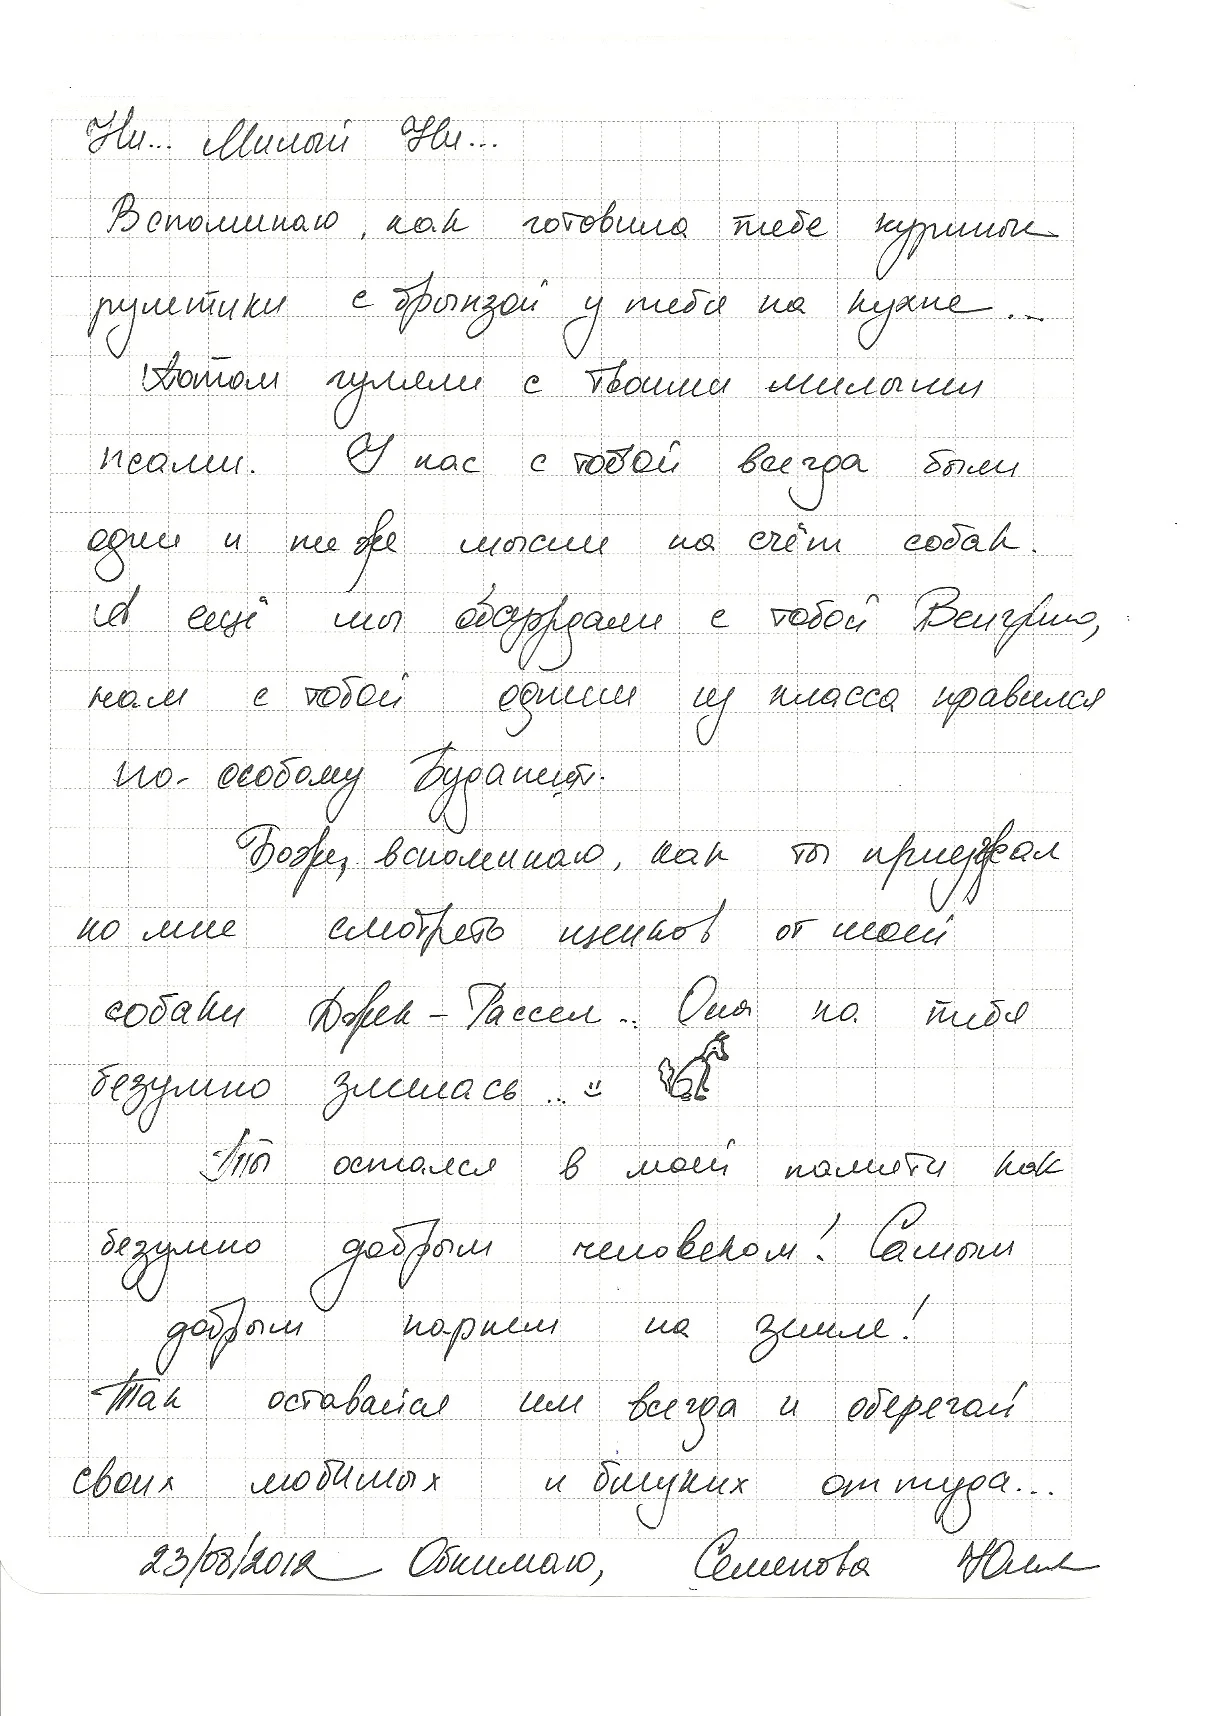 Ни... Милый Ни...
Вспоминаю, как готовила тебе куриные
рулетики с брынзой у тебя на кухне...
Потом гуляли с твоими милыми
псами. У нас с тобой всегда были
одни и те же мысли на счёт собак.
А ещё мы обсуждали с тобой Венгрию,
нам с тобой одним из класса нравился
по-особому Будапешт.
Боже, вспоминаю, как ты приезжал
ко мне смотреть щенков от моей
собаки Джек-Рассел... Она на тебя
безумно злилась...
Ты остался в моей памяти как
безумно добрым человеком! Самым
добрым парнем на земле!
Так оставайся им всегда и оберегай
своих любимых и близких оттуда...
23/08/2012 Обнимаю, Семенова Юлия